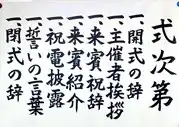 式次第
一、開式の辞
一、主催者挨拶
一、来賓祝辞
一、来賓紹介
一、祝電披露
一、誓いの言葉
一、閉式の辞